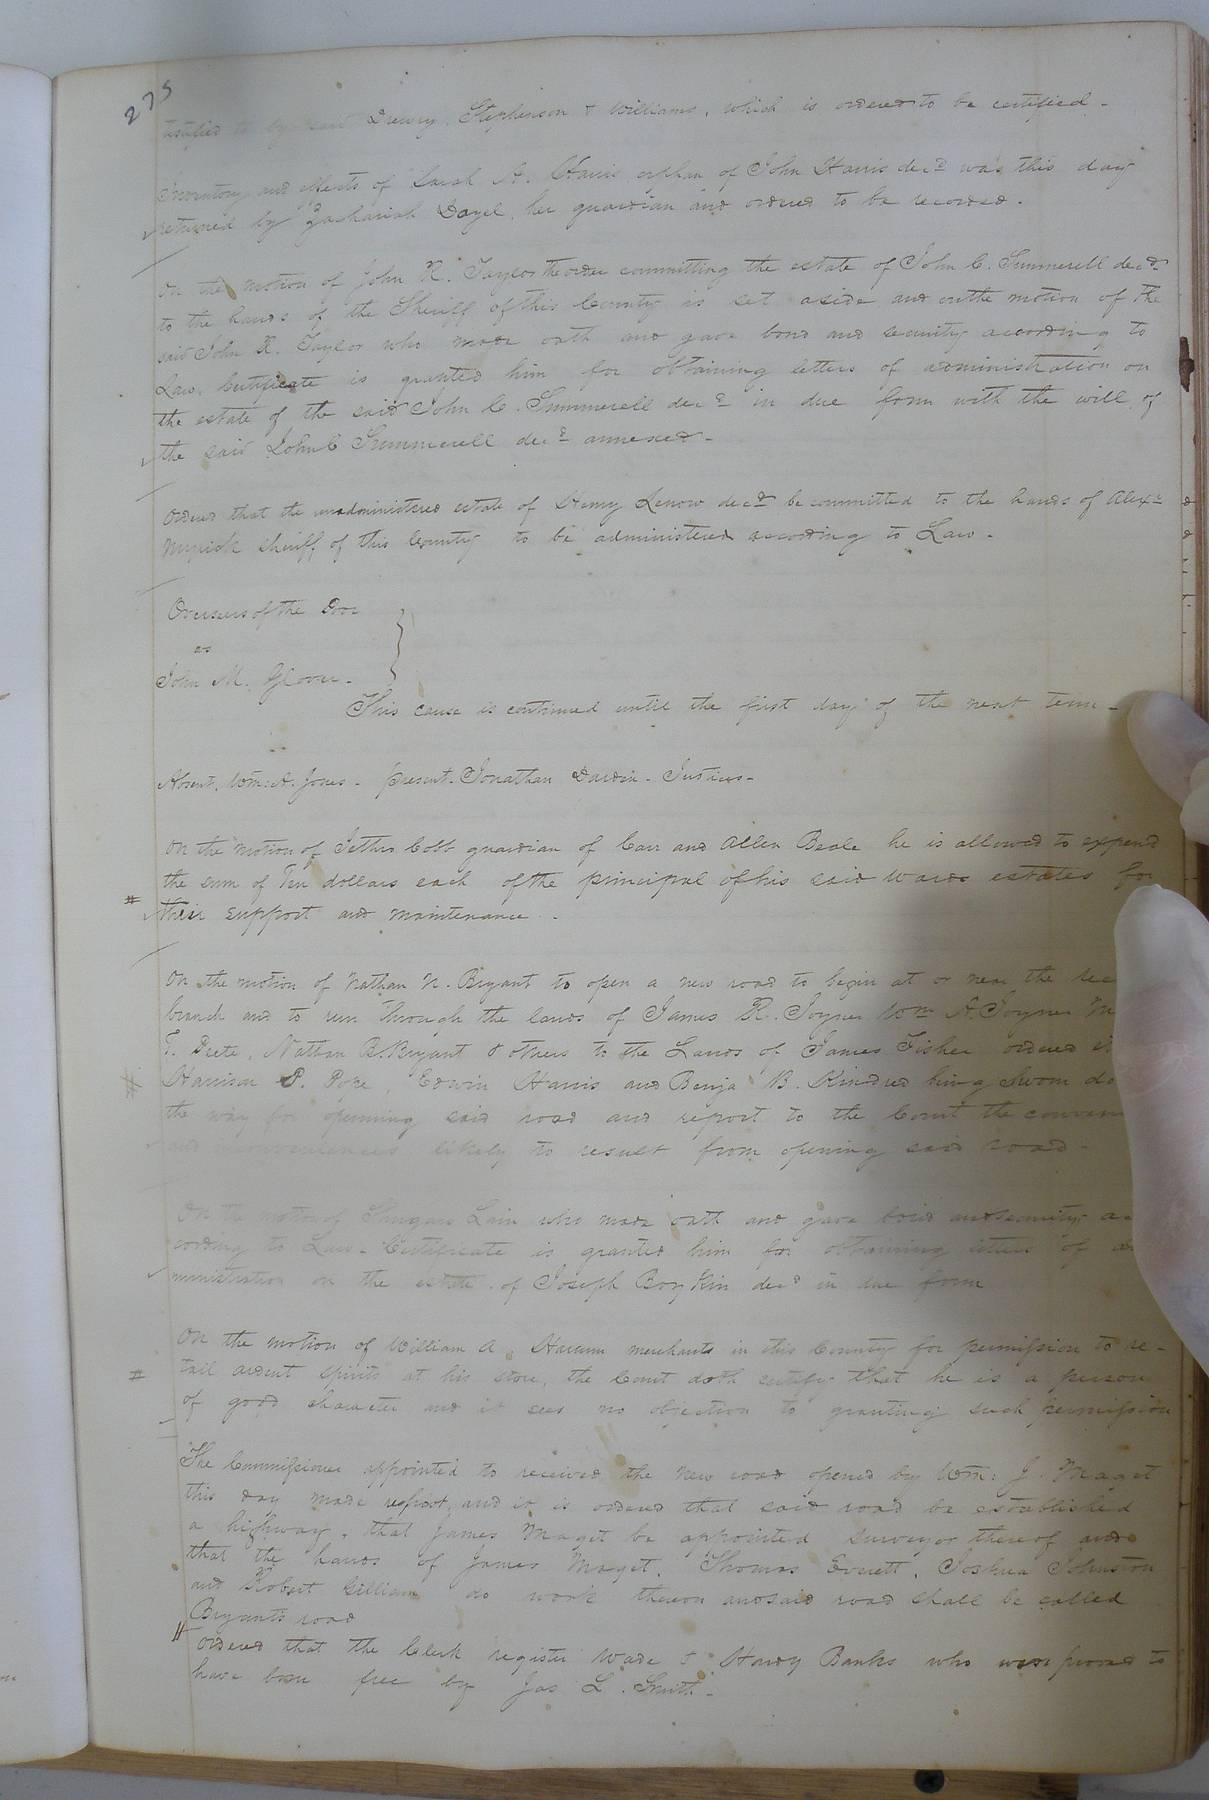 275
testified to by said Drewry, Stephenson & Williams, which is ordered to be certified.
Inventory and effects of Sarah A. Harris orphan of John Harris decd was this day
returned by Zachariah her guardian and ordered to be recorded.
On the motion of John R. Taylor the order committing the estate of John C. Summerell decd
to the hands of the Sheriff of this County is set aside and on the motion of the
said John R. Taylor who made oath and gave bond and security according to
Law, Certificate is granted him for obtaining letters of administration on
the estate of the said John C. Summerell decd in due form with the will of
the said John C Summerell decd annexed.
Ordered that the unadministered estate of Henry Lenow decd be committed to the hands of Alexr
Myrick Sheriff of this County to be administered according to Law.
Overseers of the Poor
vs
John M. Glover.
This cause is continued until the first day of the next term.
Absent, Wm. A. Jones. present. Jonathan Darden. Justices.
On the motion of Jethro Cobb guardian of Carr and Allen Beale he is allowed to expend
the sum of Ten dollars each of the principal of his said wards estates for
# their support and maintenance.
On the motion of Nathan N. Bryant to open a new road to begin at or near the
branch and to run through the lands of James R. Joyner Wm A. Joyner
T. Peete, Nathan B. Bryant & others to the Lands of James Fisher ordered
# Harrison P. Pope, Edwin Harris and Benja B. Kindred being Sworn do
the way for openning said road and report to the Court the
and inconveniences likely to result from opening said road.
On the motion of Lain who made oath and gave bond and security ac-
cording to Law. Certificate is granted him for obtaining letters of
ministration on the estate of Joseph Boykin decd in due form
On the motion of William A. merchants in this County for permission to re-
# tail ardent spirits at his store, the Court doth certify that he is a person
of good character and it sees no objection to granting such permission
The Commissioner appointed to received the new road opened by Wm. J. Maget
this day made report, and it is ordered that said road be established
a highway, that James Maget be appointed surveyor thereof and
that the hands of James Maget, Thomas Everett, Joshua Johnston
and Robert Gilliam do work thereon and said road shall be called
Bryants road
# Ordered that the Clerk register Wade & Hardy Banks who were proved to
have been free by Jas L. Smith.